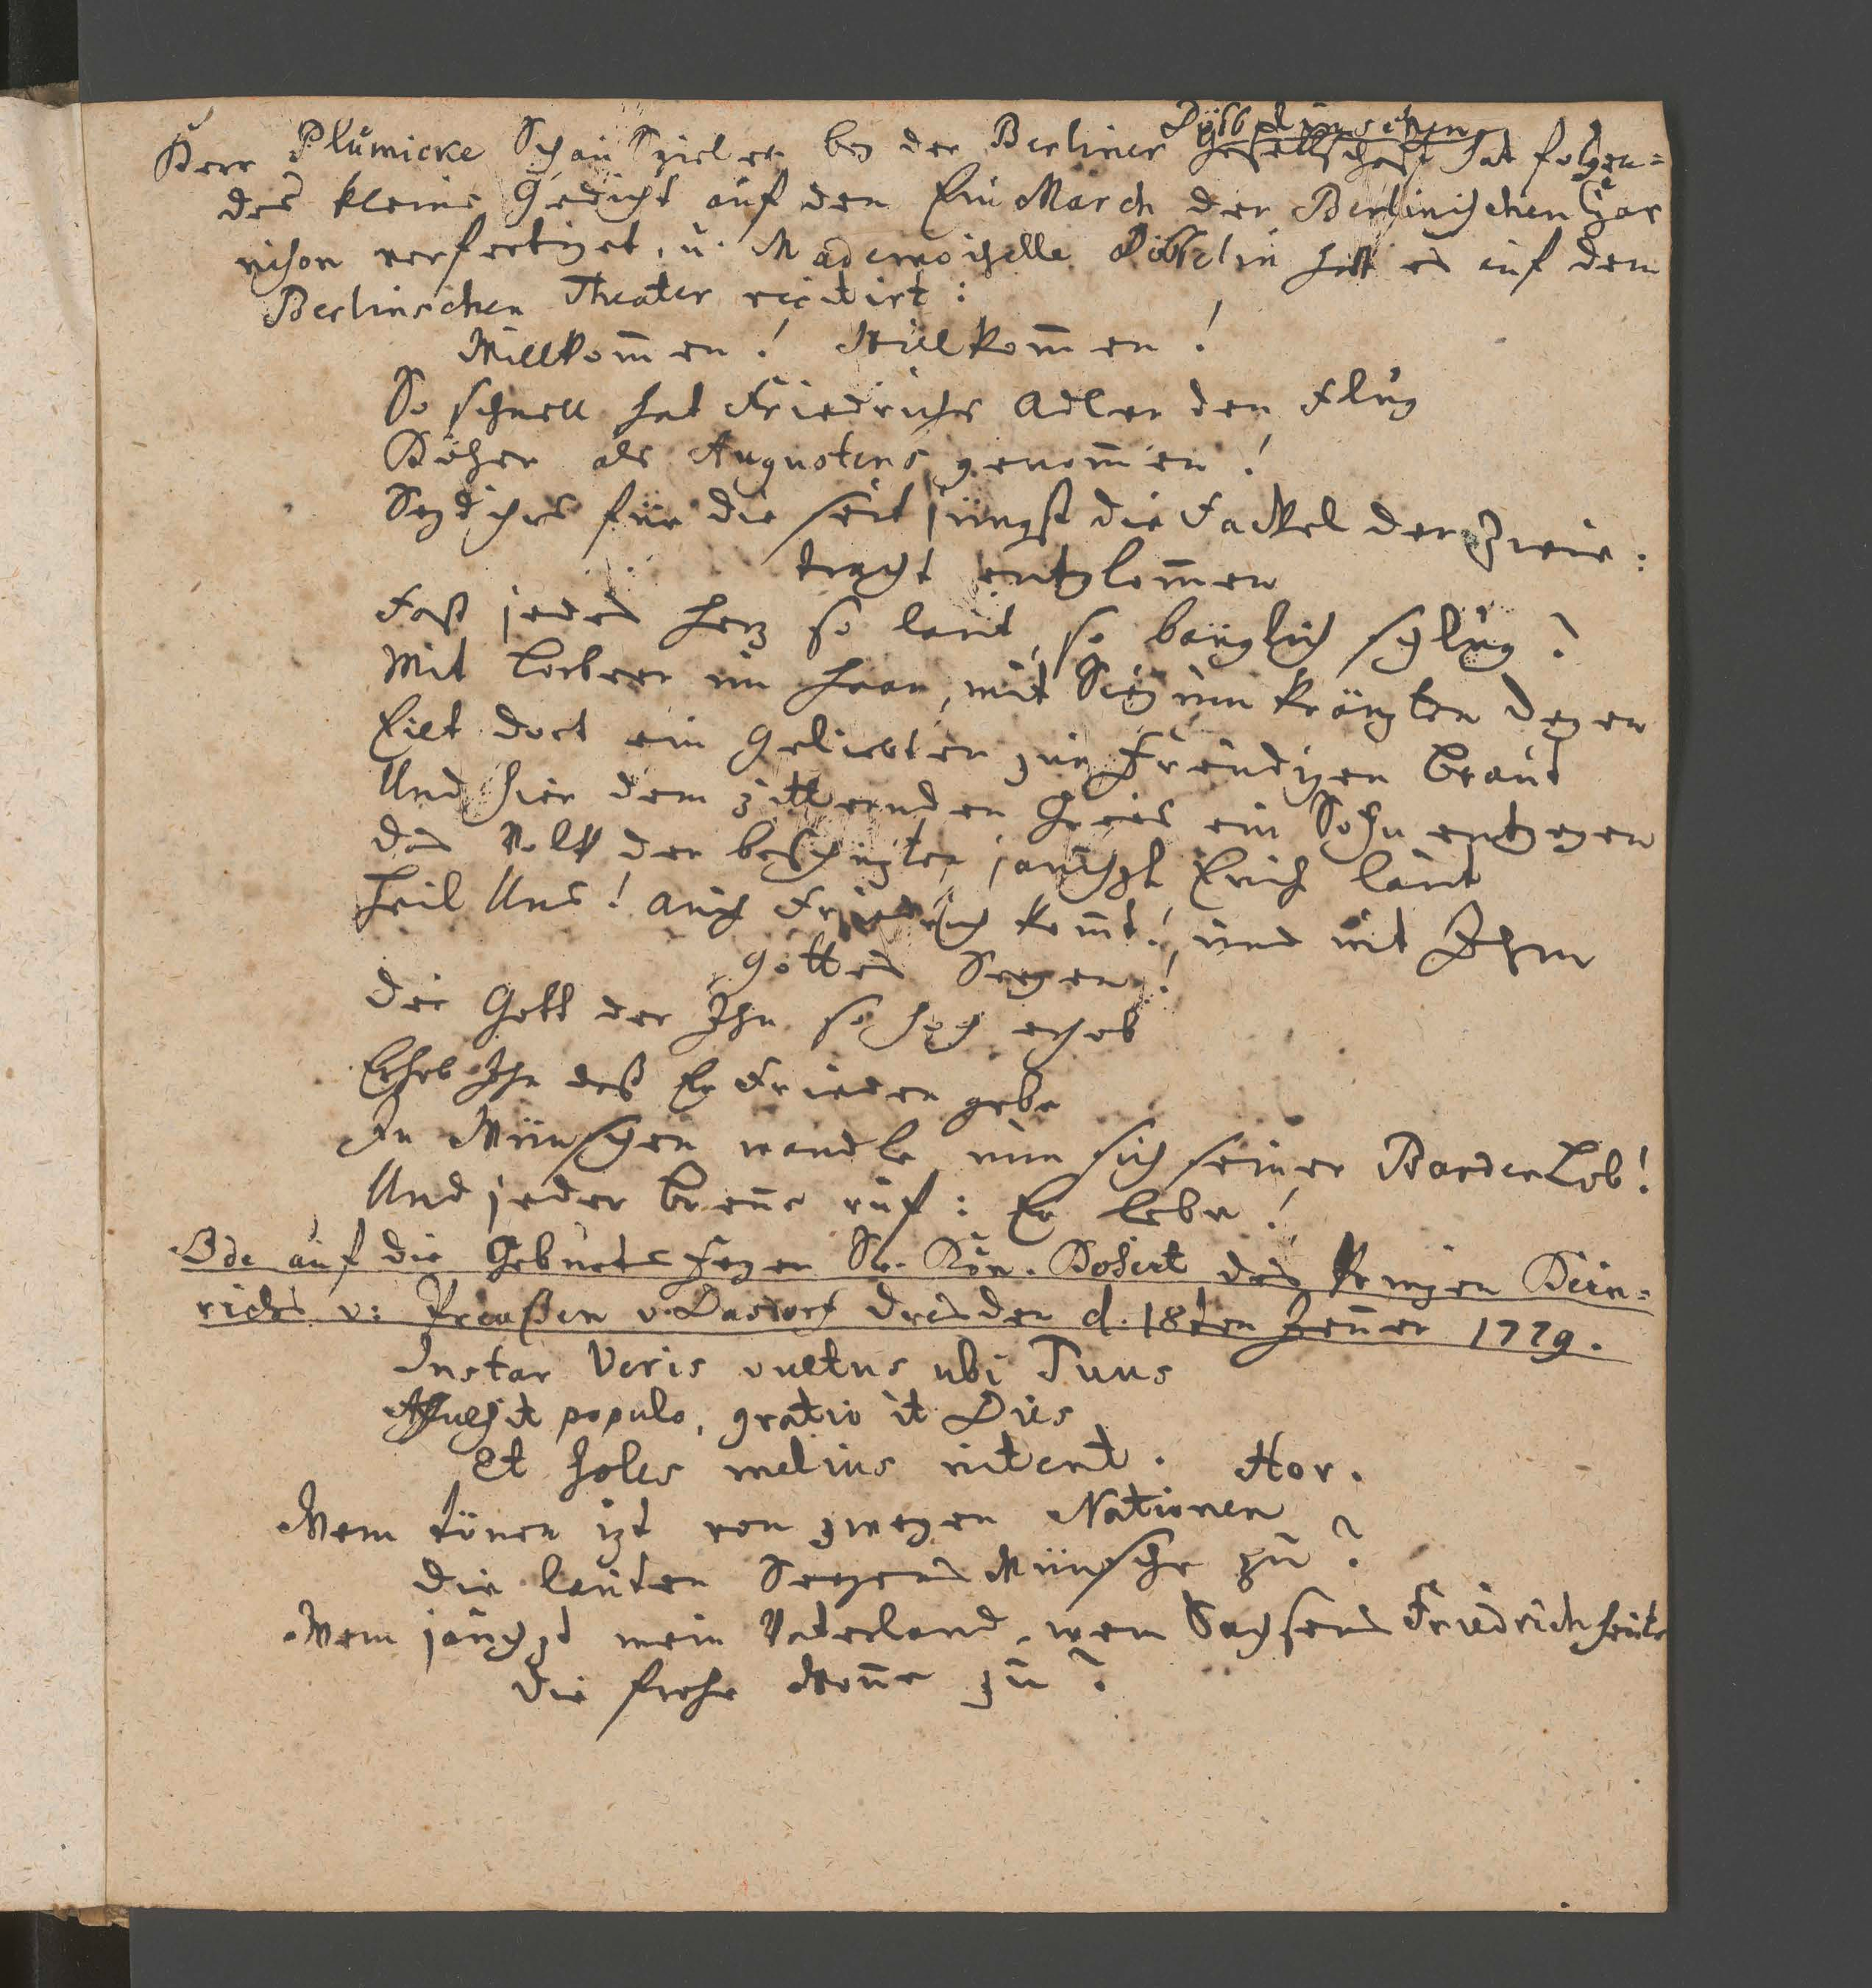 Döbbelinschen
Herr Plümicke Schau Spieler bey der Berliner Gesellschaft hat folgen=
des kleine Gedicht auf den Ein March der Berlinischen Gar
nison verfertiget, u. Mademoiselle Döbbelin hatt es auf dem
Berlinschen Theater recitirt:
Willkom̅en! Willkom̅en!
So schnell hat Friedrichs Adler den Flug
Höher als Augustens genom̅en!
Seyd ihrs für die seit jüngst die Fackel der Zwie:
tracht entglom̅en
Fast jedes Herz so laut, so bänglich schlug?
Mit Lorbeer im Haar, mit Sieg um kränzten Degen
Eilt dort ein Geliebter zur Freudigen Braut
Und hier dem zitternden Greis ein Sohn entgegen
das Volk der beschüzter jauchzt Euch laut
Heil Uns! auch Friedrich kom̅t! und mit Ihm
Gottes Seegen!
Der Gott der Ihn so hoch erhob
Erhob Ihn daß Er Frieden gebe
In Wünschen wandle nun sich seiner Barden Lob!
Und jeder Bren̅e ruf: Er lebe!
Ode auf die Geburts Seyer Sr. Kön. Hoheit des Prinzen Hein=
richs v: Preußen v. Dasdorf Dresden d. 18ten Jen̅er 1779.
Instar Veris vultus ubi Tuus
Affulsit populo, gratio it Dies
Et soles melius nitent. Hor.
Wem tönen izt von zweyen Nationen
die lauten Seegens Wünsche zu?
Wem jauchzt mein Vaterland, wem Sachsens Friedrich heute
die frohe Won̅e zu?